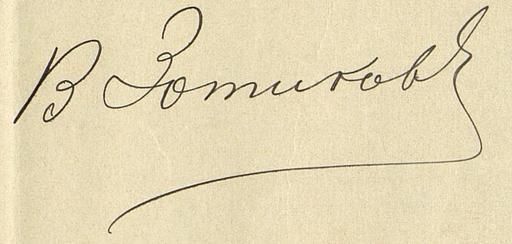 В Зотиковъ